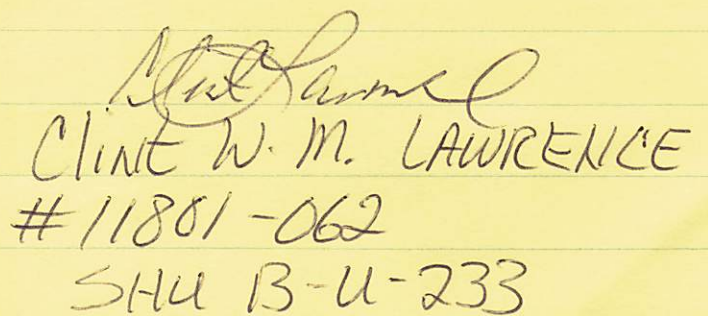 Clint Lawrence
CLINT W. M. LAWRENCE
#11801-062
SHU B-U-233